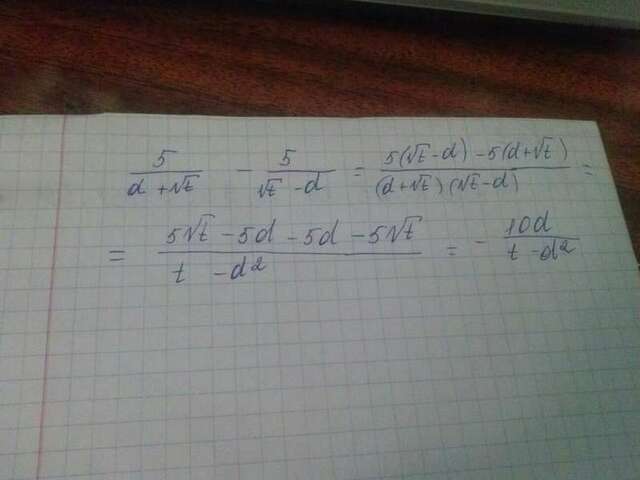 5/(d + √t) - 5/(√t - d) = (5(√t - d) - 5(d + √t))/((d + √t)(√t - d)) =
= (5√t - 5d - 5d - 5√t)/(t - d²) = - 10d/(t - d²)